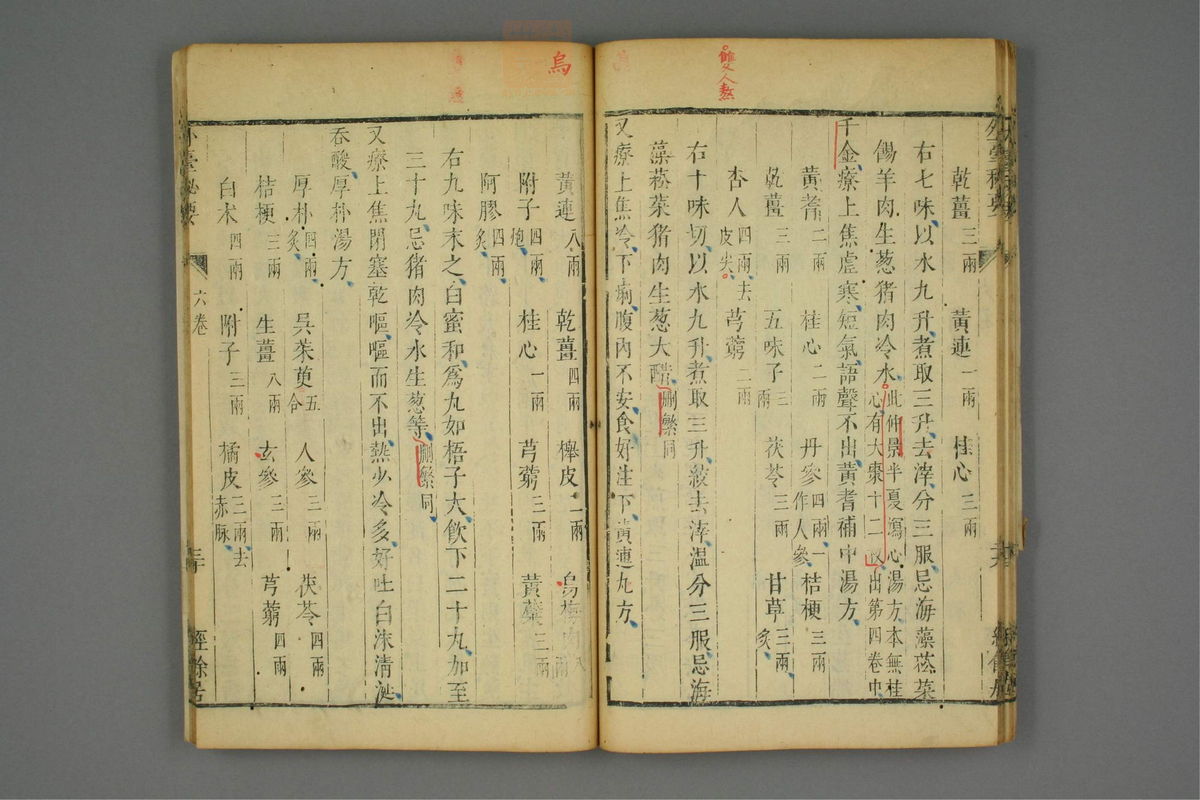 雙人熬
乾薑三兩 黃連一兩 桂心三兩
右七味以水九升煮取三升去滓分三服忌海藻菘菜
餳羊肉生葱猪肉冷水此仲景半夏瀉心湯方本無桂心有大棗十二枚出第四卷中
千金療上焦虛寒短氣語聲不出黃耆補中湯方
黃耆二兩 桂心二兩 丹參四兩一作人參 桔梗三兩
乾薑三兩 五味子三兩 茯苓三兩 甘草三兩炙
杏人四兩去皮尖 芎藭二兩
右十味切以水九升煮取三升絞去滓溫分三服忌海
藻菘菜猪肉生葱大醋刪繁同
又療上焦冷下痢腹內不安食好注下黃連丸方
烏
黃連八兩 乾薑四兩 櫸皮二兩 烏梅肉八兩
附子四兩炮 桂心一兩 芎藭三兩 黃蘗三兩
阿膠四兩炙
右九味末之白蜜和為丸如梧子大飲下二十丸加至
三十丸忌猪肉冷水生葱等刪繁同
又療上焦閉塞乾嘔嘔而不出熱少冷多好吐白沫清涎
吞酸厚朴湯方
厚朴四兩炙 吳茱萸五合 人參三兩 茯苓四兩
桔梗三兩 生薑八兩 玄參三兩 芎藭四兩
白朮四兩 附子三兩 橘皮三兩去赤脉
外臺秘要 六卷 三十 經餘居